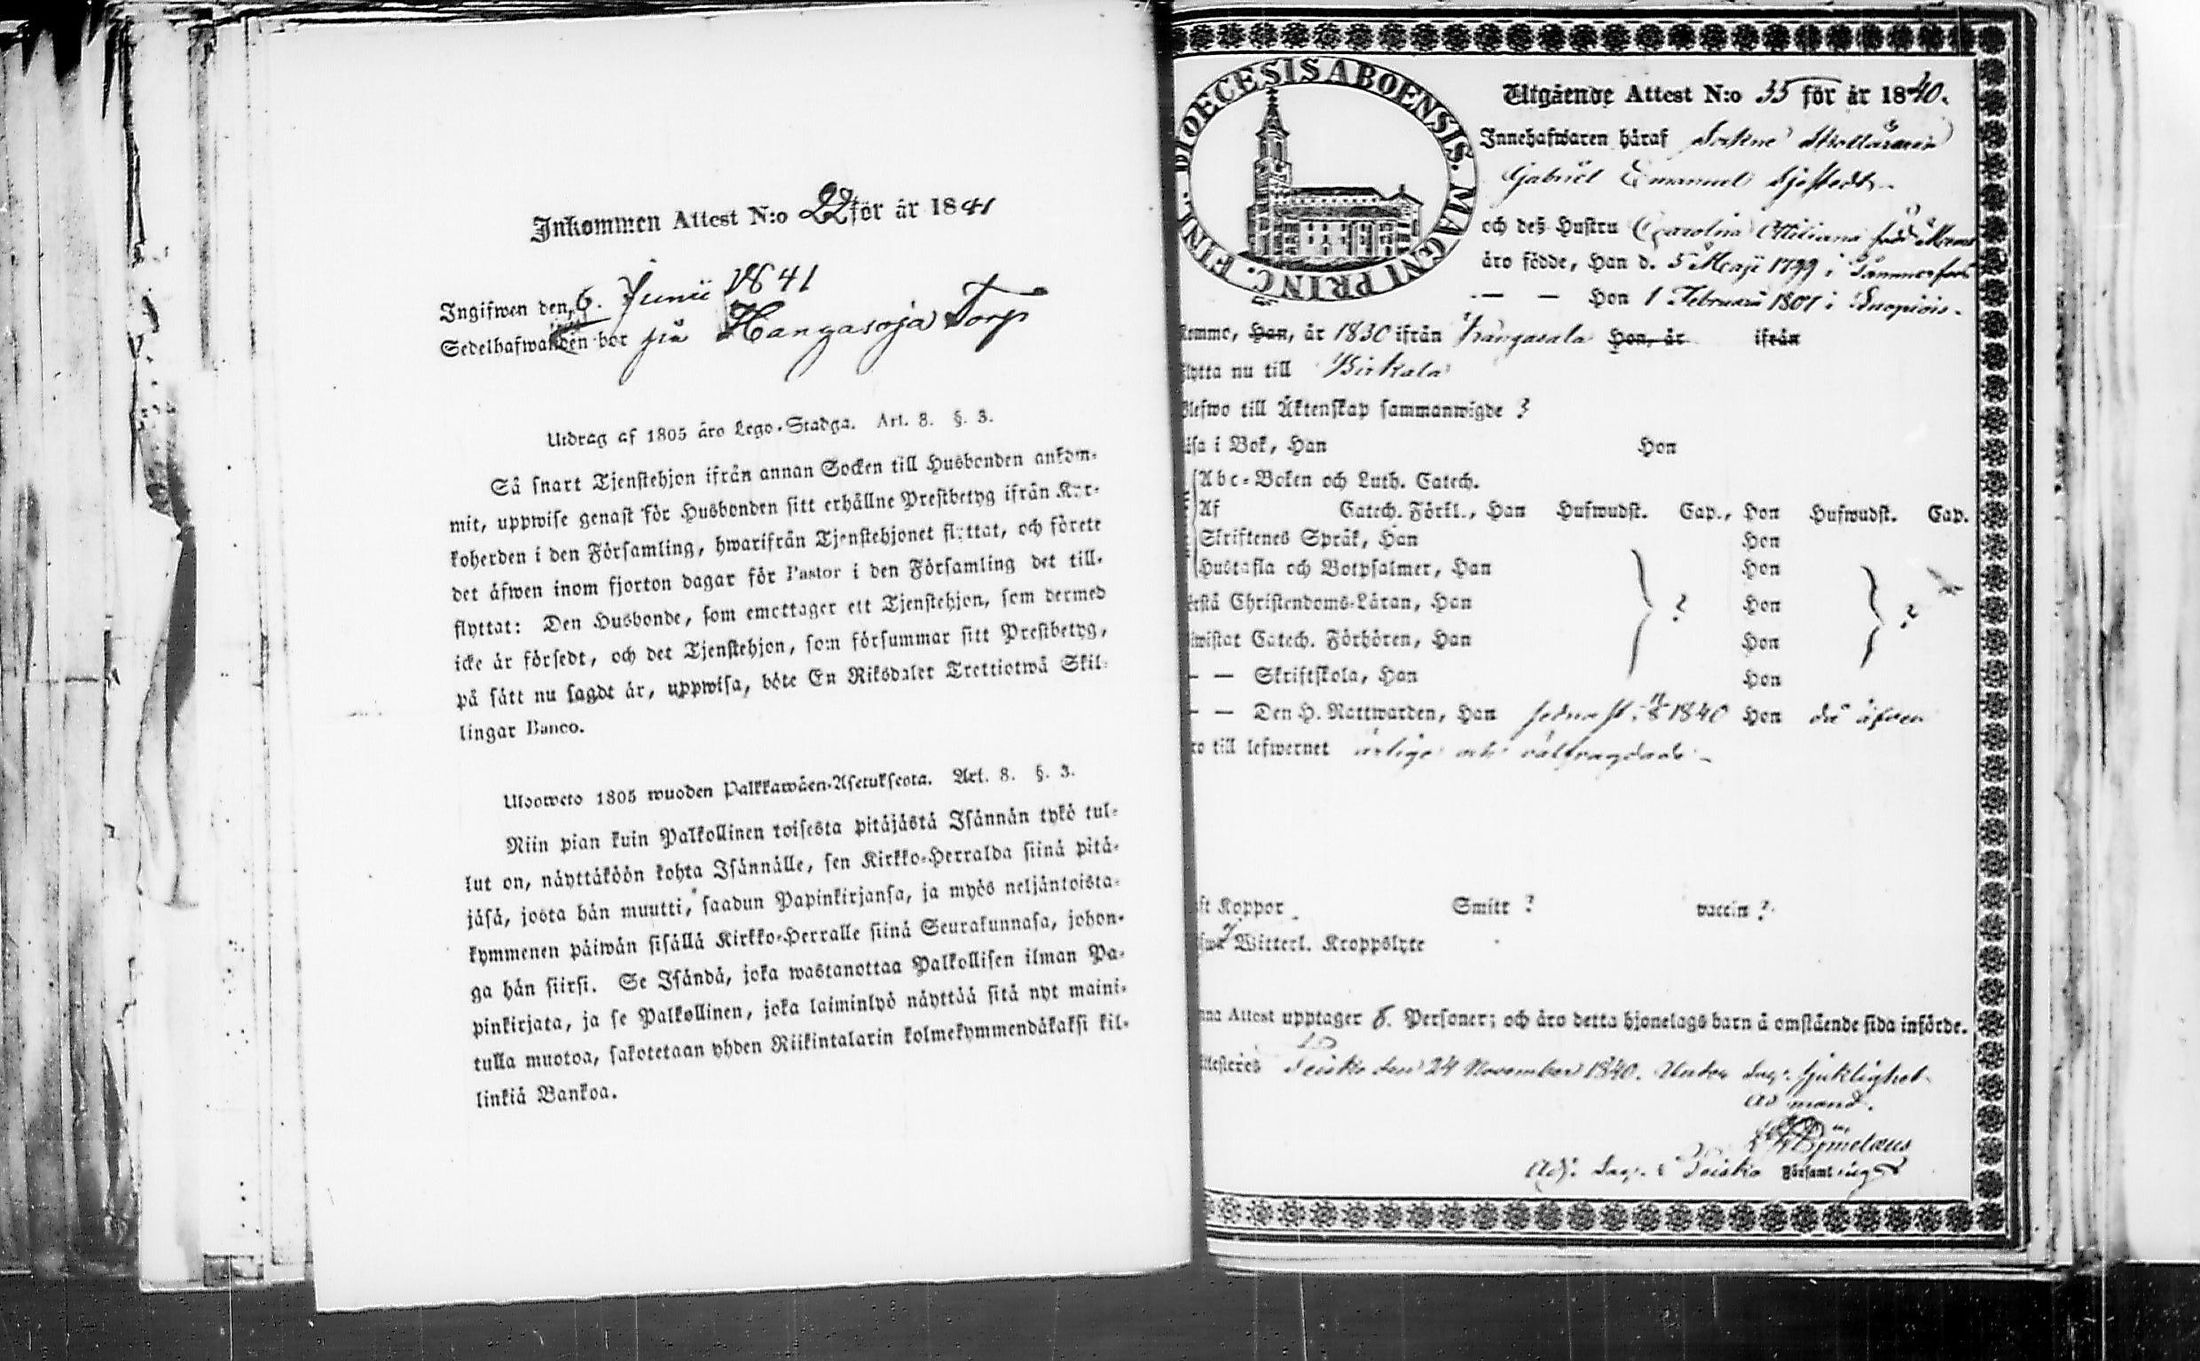 Inkommen Attest N:o 22 för år 1841
Ingifwen den 6. Junii 1841
Sedelhafwanden bor på Hangasoja Torp
Utdrag af 1805 års Lego-Stadga. Art. 8. §. 3.
Så snart Tjenstehjon ifrån annan Socken till Husbonden ankom-
mit, uppwise genast för Husbonden sitt erhållne Prestbetyg ifrån Kyr-
koherden i den Församling, hwarifrån Tjenstehjonet flyttat, och förete
det äfwen inom fjorton dagar för Pastor i den Församling det till-
flyttat: Den Husbonde, som emottager ett Tjenstehjon, som dermed
icke är försedt, och det Tjenstehjon, som försummar sitt Prestbetyg,
på sätt nu sagdt är, uppwisa, böte En Riksdaler Trettiotwå Skil-
lingar Banco.
Ulosweto 1805 wuoden Palkkawäen-Asetuksesta. Art. 8. §. 3.
Niin pian kuin Palkollinen toisesta pitäjästä Isännän tykö tul-
lut on, näyttäköön kohta Isännälle, sen Kirkko-Herralda siinä pitä-
jäsä, josta hän muutti, saadun Papinkirjansa, ja myös neljäntoista-
kymmenen päiwän sisällä Kirkko-Herralle siinä Seurakunnasa, johon-
ga hän siirsi. Se Isändä, joka wastanottaa Palkollisen ilman Pa-
pinkirjata, ja se Palkollinen, joka laiminlyö näyttää sitä nyt maini-
tulla muotoa, sakotetaan yhden Riikintalarin kolmekymmendäkaksi kil-
linkiä Bankoa.
DIOECESIS ABOENSIS. MAGNI PRINC. FINL.
Utgående Attest N:o 35 för år 1840.
Innehafwaren häraf Sockne
Gabriël Emanuel Sjöstedt
och deß Hustru Carolina Ottiliana född
äro födde, Han d. 5 Maji 1799 i
— — Hon 1 Februarii 1801 i Kuopio
komme, Han, år 1830 ifrån Kangasala Hon, år ifrån
flytta nu till Birkala
Blefwo till Äktenskap sammanwigde ?
läsa i Bok, Han Hon
Abc-Boken och Luth. Catech.
Af Catech. Förkl., Han Hufwudst. Cap., Hon Hufwudst. Cap.
Skriftenes Språk, Han Hon
Hustafla och Botpsalmer, Han Hon
Förstå Christendoms-Läran, Han ? Hon ?
bewistat Catech. Förhören, Han Hon
— — Skriftskola, Han Hon
— — Den H. Nattwarden, Han sednast 1840 Hon då äfven
äro till lefwernet ärlige och välfrägdade
Koppor Smitt ? vaccin ?
Witterl. Kroppslyte
Denna Attest upptager 8. Personer; och äro detta hjonelags barn å omstående sida införde.
Attesteres Teisko den 24 November 1840. Under
Ad mand.
Adj. i Teisko Församling